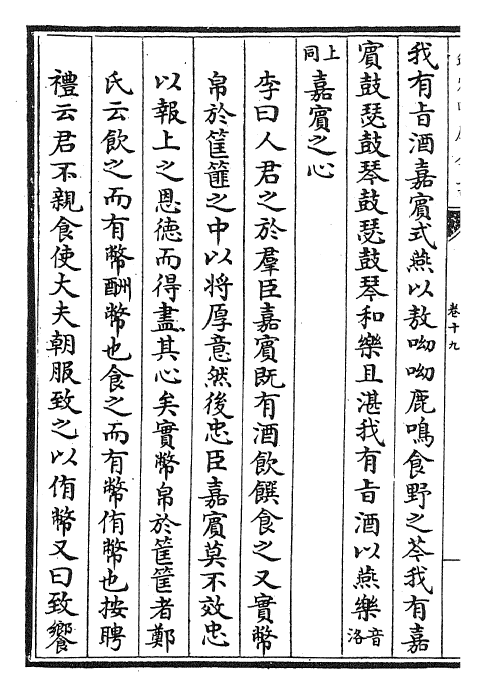 我有旨酒嘉賓式燕以敖呦呦鹿鳴食野之芩我有嘉
賓鼓瑟鼓琴鼓瑟鼓琴和樂且湛我有旨酒以燕樂音洛
上同嘉賓之心
李曰人君之於羣臣嘉賓既有酒飲饌食之又實幣
帛於筐篚之中以將厚意然後忠臣嘉賓莫不效忠
以報上之恩德而得盡其心矣實幣帛於筐筐者鄭
氏云飲之而有幣酬幣也食之而有幣侑幣也按聘
禮云君不親食使大夫朝服致之以侑幣又曰致饗
卷十九